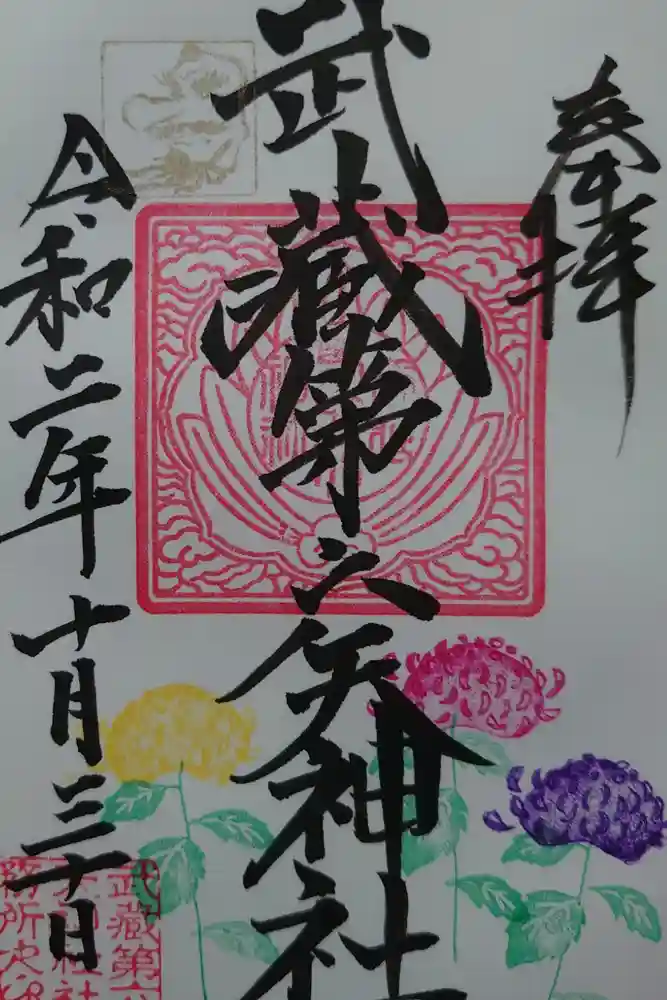 奉拝
武蔵第六天神社
令和二年十月三十日
武蔵第六
天神社社
務所之印